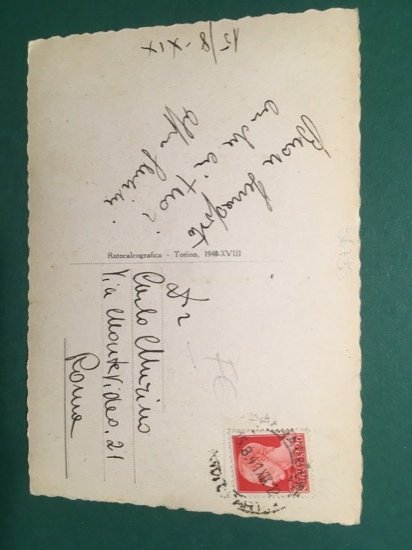 15/8-XIX
Buon ferragosto
anche ai tuoi
Rotocalcografica - Torino, 1940-XVIII
Dr
Carlo Murino
Via Montevideo, 21
Roma